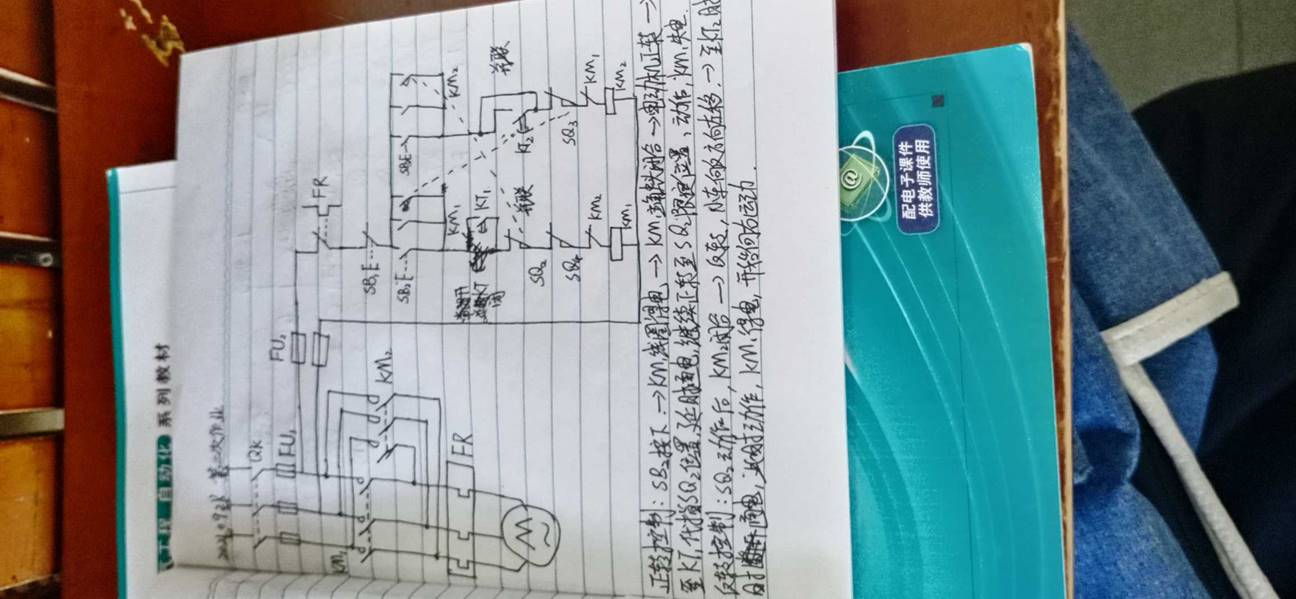 工程 自动化 系列教材
第二次作业
QK
FU₁
FU₂
FR
KM₁
KM₂
FR
M
~
SB₁
SB₂
KM₁
KM₂
KT₁
并联
并联
KT₂
SQ₂
SQ₃
SQ₄
KM₂
KM₁
KM₁
KM₂
正转控制：SB₂按下→KM₁线圈得电→KM₁主触头闭合→电动机正转→
至KT₁代替SQ₂位置,延时通电,继续正转至SQ₂限定位置,动作,KM₁失电
反转控制：SQ₂动作后,KM₂闭合→反转,小车向反方向左移.→至KT₂
通电,此时动作,KM₁得电,开始向右运动.
@
配电子课件
供教师使用